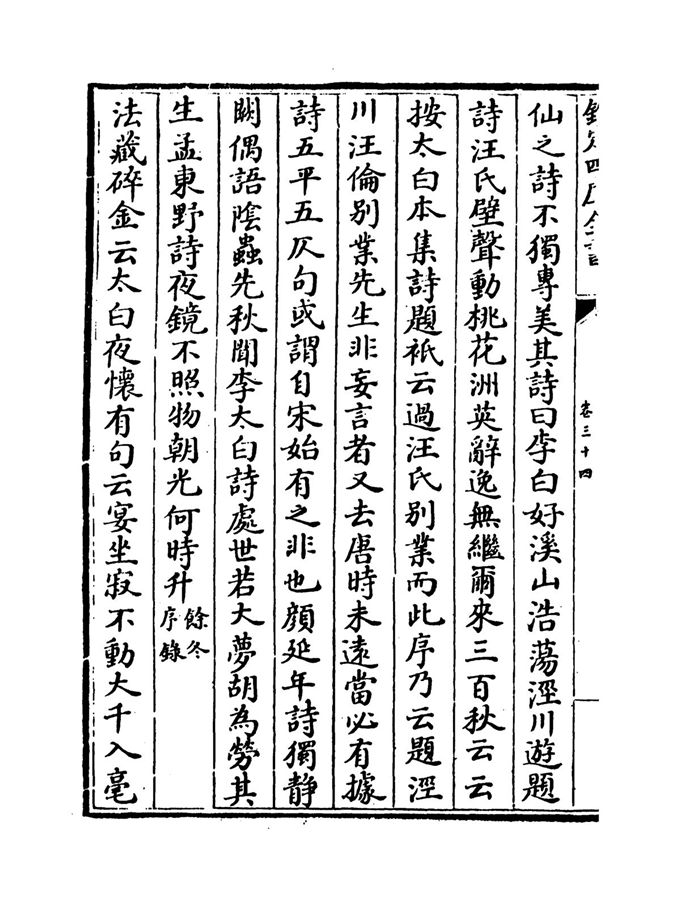 欽定四庫全書
卷三十四
仙之詩不獨專美其詩曰李白好溪山浩蕩涇川遊題
詩汪氏壁聲動桃花洲英辭逸無繼爾來三百秋云云
按太白本集詩題祇云過汪氏别業而此序乃云題涇
川汪倫别業先生非妄言者又去唐時未遠當必有據
詩五平五仄句或謂自宋始有之非也顔延年詩獨静
闕偶語陰蟲先秋聞李太白詩處世若大夢胡為勞其
生孟東野詩夜鏡不照物朝光何時升餘冬序錄
法藏碎金云太白夜懷有句云宴坐寂不動大千入毫